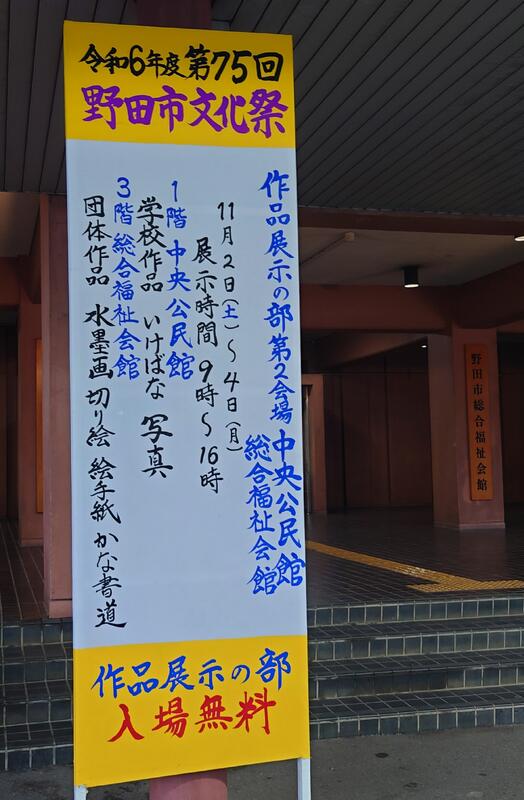 令和6年度第75回
野田市文化祭
作品展示の部第2会場 中央公民館
総合福祉会館
11月2日(土)～4日(月)
展示時間 9時～16時
1階 中央公民館
学校作品 いけばな 写真
3階 総合福祉会館
団体作品 水墨画 切り絵 絵手紙 かな書道
作品展示の部
入場無料
野田市総合福祉会館